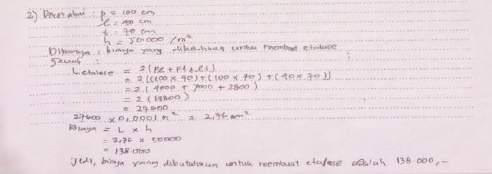 2) Diketahui : p = 100 cm
l = 40 cm
t = 70 cm
h = 50.000 / m²
Ditanya : biaya yang dibutuhkan untuk membuat etalase
Jawab :
L etalase = 2 (pl + pt + lt)
= 2 ((100 x 40) + (100 x 70) + (40 x 70))
= 2 ( 4000 + 7000 + 2800)
= 2 (13800)
= 27.600
27600 x 0,0001 m² = 2,76 m²
Biaya = L x h
= 2,76 x 50000
= 138.000
Jadi, biaya yang dibutuhkan untuk membuat etalase adalah 138.000,-